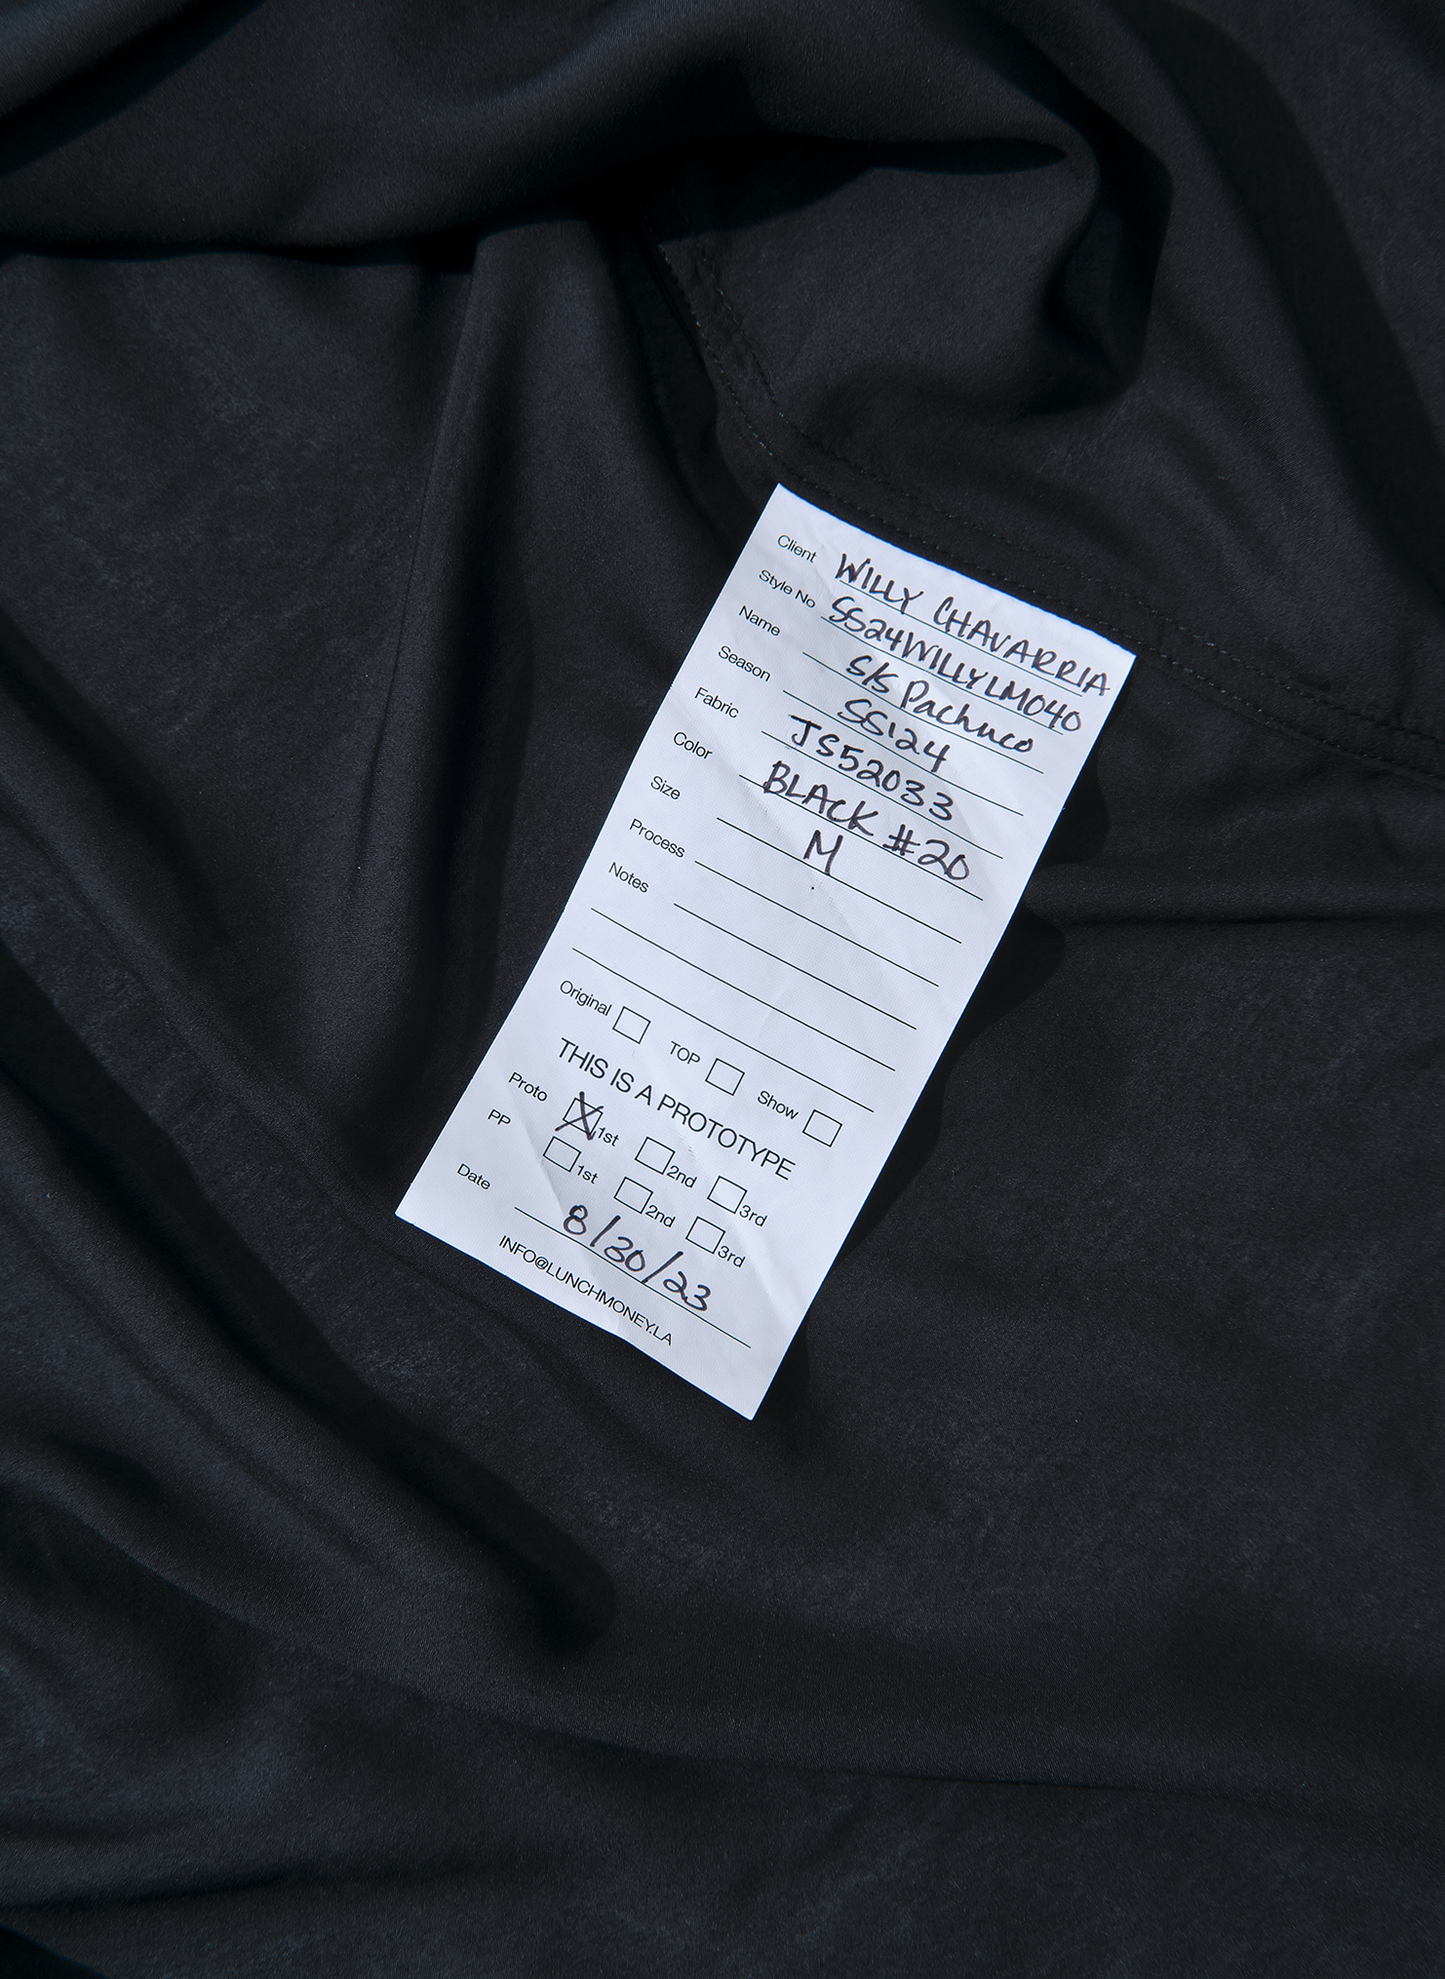 Client WILLY CHAVARRIA
Style No SS24WILLYLM040
Name S/S Pachuco
Season SS124
Fabric JS52033
Color BLACK #20
Size M
Process
Notes
Original TOP Show
THIS IS A PROTOTYPE
Proto X 1st 2nd 3rd
PP 1st 2nd 3rd
Date 8/30/23
INFO@LUNCHMONEY.LA